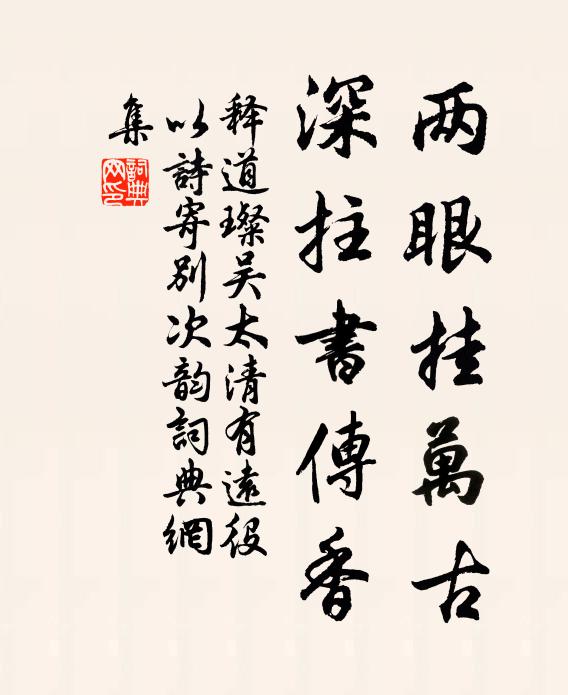 两眼挂萬古
深拄書傳香
释道璨吴太清有遠役
以詩寄别次韵詞典網
集
詞典
网印